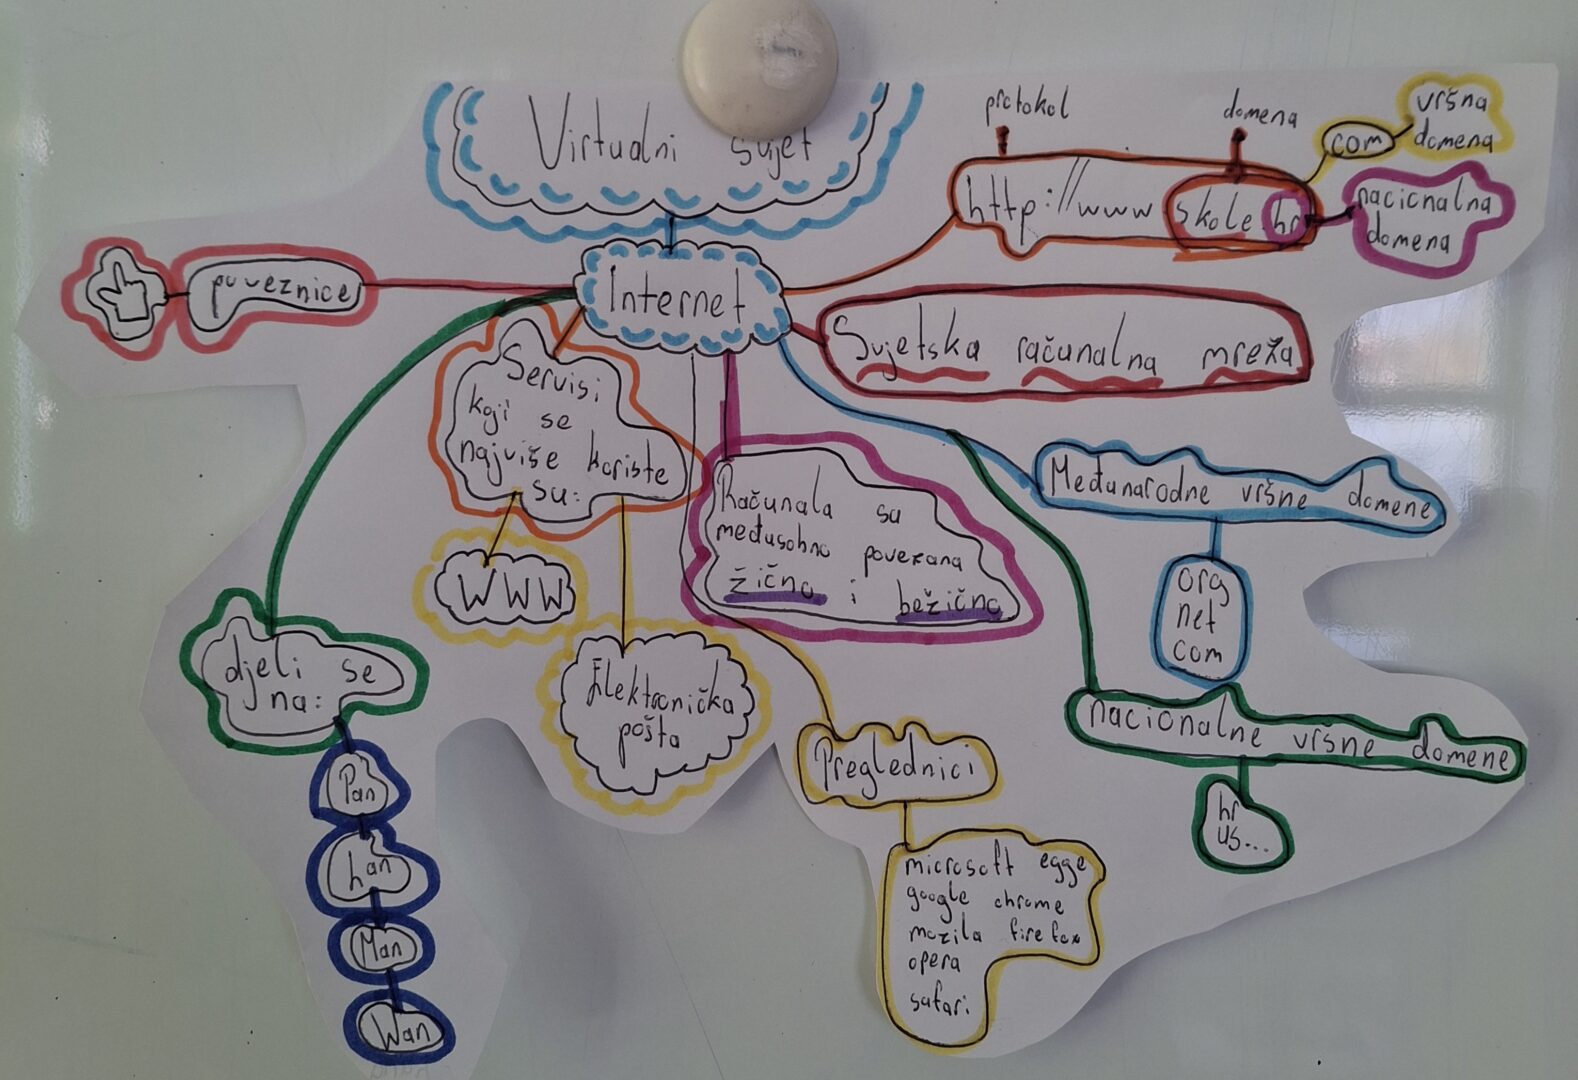 Virtualni svijet
Internet
protokol
domena
http://www skole hr
com
vršna
domena
nacionalna
domena
poveznice
Svjetska računalna mreža
Servisi
koji se
najviše koriste
su:
WWW
Elektronička
pošta
Računala su
međusobno povezana
žično i bežično
Međunarodne vršne domene
org
net
com
nacionalne vršne domene
hr
us...
djeli se
na:
Pan
Lan
Man
Wan
Preglednici
microsoft egge
google chrome
mozila firefox
opera
safari